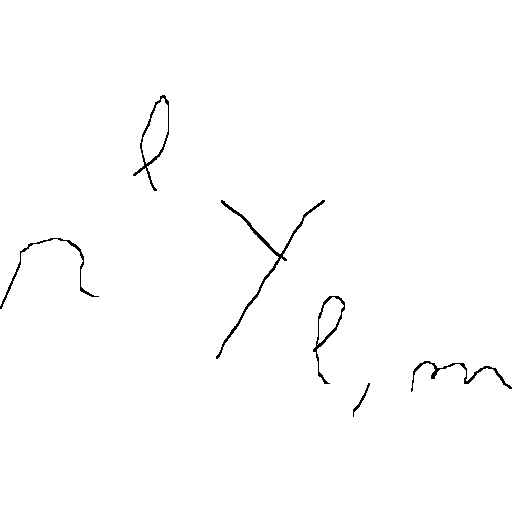 r^l Y_{l,m}